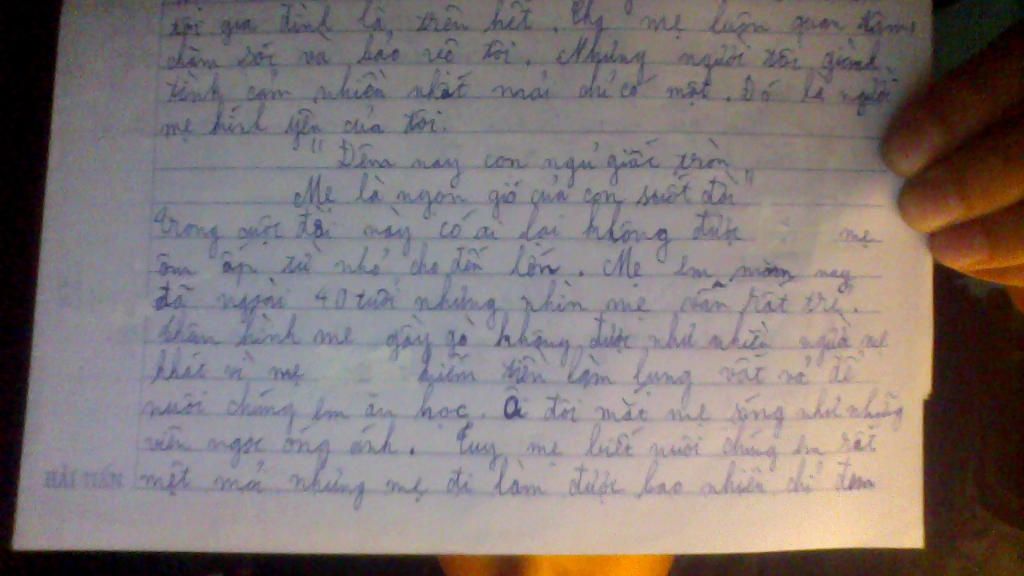 tôi gia đình là, trên hết. Cha mẹ luôn quan tâm,
chăm sóc và bao vệ tôi. Nhưng người tôi giành
tình cảm nhiều nhất mãi chỉ có một. Đó là người
mẹ kính yêu của tôi.
"Đêm nay con ngủ giấc tròn
Mẹ là ngọn gió của con suốt đời"
Trong cuộc đời này có ai lại không được mẹ
ôm ấp từ nhỏ cho đến lớn. Mẹ em năm nay
đã ngoài 40 tuổi nhưng nhìn mẹ vẫn rất trẻ.
thân hình mẹ gầy gò không được như nhiều người mẹ
khác vì mẹ kiếm tiền làm lụng vất vả để
nuôi chúng em ăn học. Ôi đôi mắt mẹ sáng như những
viên ngọc óng ánh. Tuy mẹ biết nuôi chúng em rất
mệt mỏi nhưng mẹ đi làm được bao nhiêu chỉ đem
HẢI TIẾN